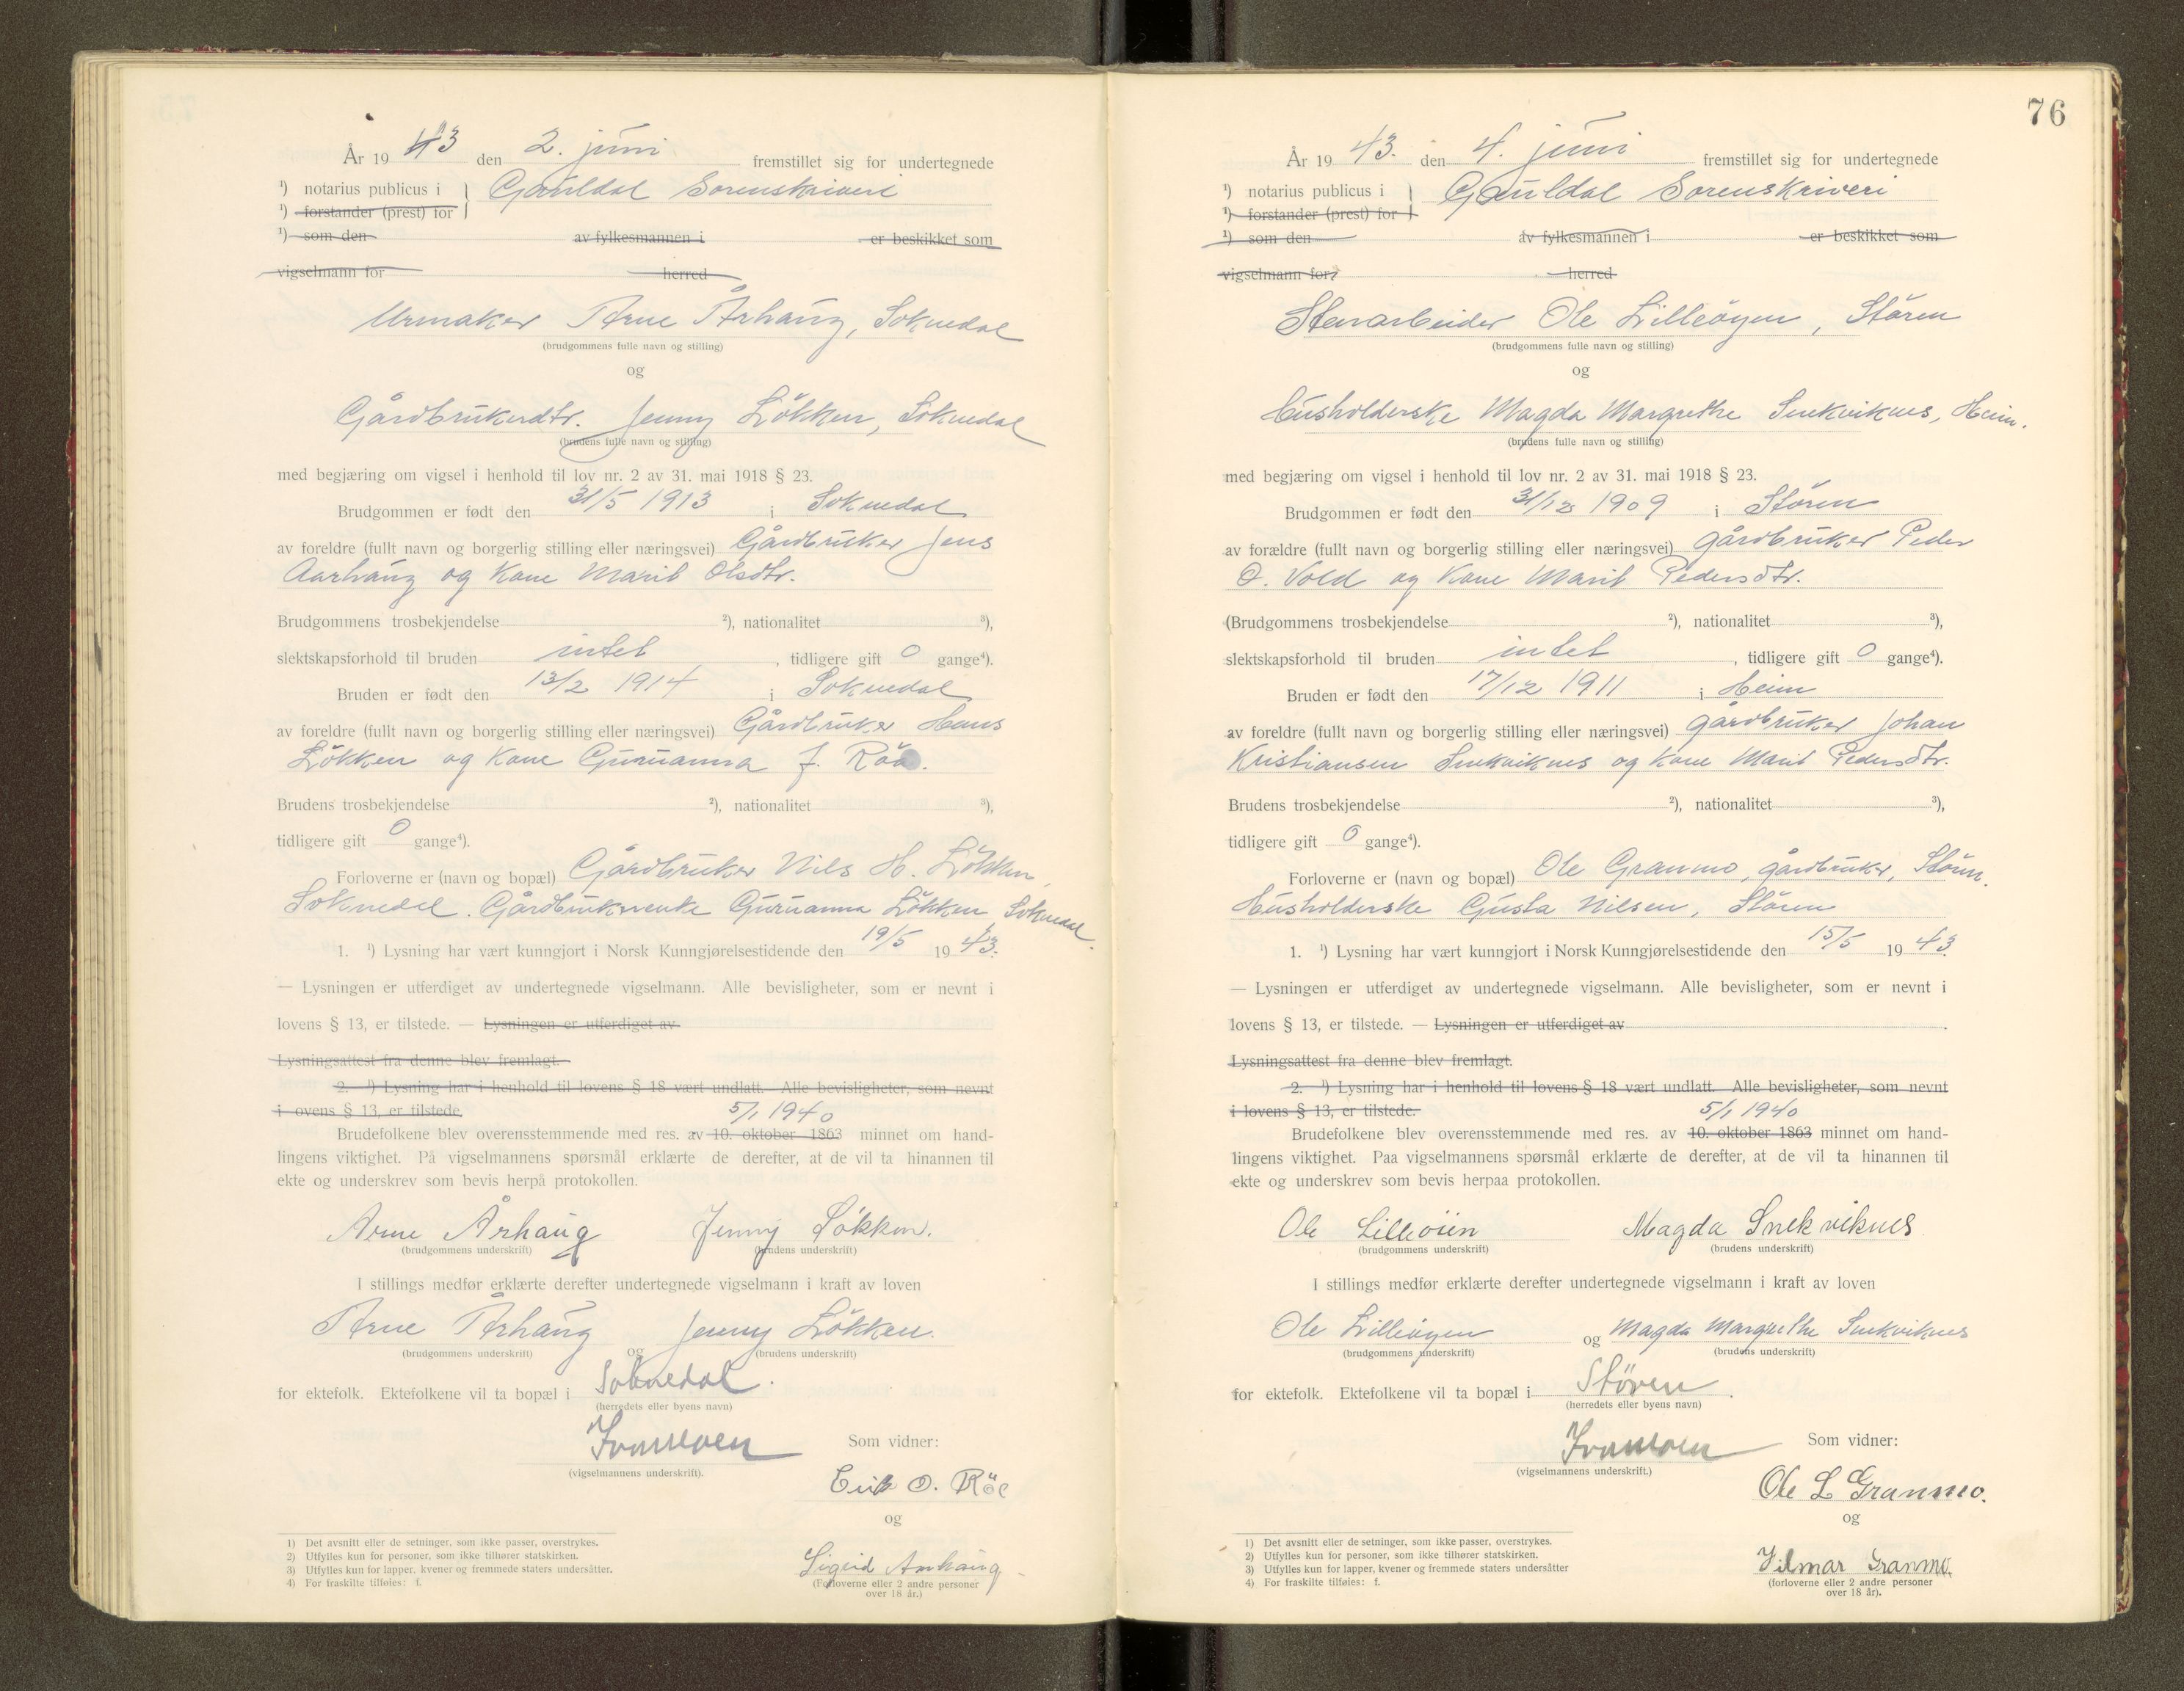 År 19 43 den 2. juni fremstillet sig for undertegnede
¹) notarius publicus i } Gauldal Sorenskriveri
¹) forstander (prest) for
¹) som den av fylkesmannen i er beskikket som
vigselmann for herred
Urmaker Arne Århaug, Soknedal
(brudgommens fulle navn og stilling)
og
Gårdbrukerdtr. Jenny Løkken, Soknedal
(brudens fulle navn og stilling)
med begjæring om vigsel i henhold til lov nr. 2 av 31. mai 1918 § 23.
Brudgommen er født den 31/5 1913 i Soknedal
av foreldre (fullt navn og borgerlig stilling eller næringsvei) Gårdbruker Jens
Aarhaug og kone Marit Olsdtr.
Brudgommens trosbekjendelse ²), nationalitet ³),
slektskapsforhold til bruden intet , tidligere gift 0 gange⁴).
Bruden er født den 13/2 1914 i Soknedal
av foreldre (fullt navn og borgerlig stilling eller næringsvei) Gårdbruker Hans
Løkken og kone Guruanna f.
Brudens trosbekjendelse ²), nationalitet ³),
tidligere gift 0 gange⁴).
Forloverne er (navn og bopæl) Gårdbruker Nils H. Løkken,
Soknedal. Gårdbrukerenke Guruanna Løkken, Soknedal.
1. ¹) Lysning har vært kunngjort i Norsk Kunngjørelsestidende den 19/5 19 43.
— Lysningen er utferdiget av undertegnede vigselmann. Alle bevisligheter, som er nevnt i
lovens § 13, er tilstede. — Lysningen er utferdiget av
Lysningsattest fra denne blev fremlagt.
2. ¹) Lysning har i henhold til lovens § 18 vært undlatt. Alle bevisligheter, som nevnt
i ovens § 13, er tilstede.
5/1 1940
Brudefolkene blev overensstemmende med res. av 10. oktober 1863 minnet om hand-
lingens viktighet. På vigselmannens spørsmål erklærte de derefter, at de vil ta hinannen til
ekte og underskrev som bevis herpå protokollen.
Arne Århaug Jenny Løkken.
(brudgommens underskrift) (brudens underskrift)
I stillings medfør erklærte derefter undertegnede vigselmann i kraft av loven
Arne Århaug og Jenny Løkken.
(brudgommens underskrift) (brudens underskrift)
for ektefolk. Ektefolkene vil ta bopæl i Soknedal.
(herredets eller byens navn)
(vigselmannens underskrift).
Som vidner:
Erik O. Röe
og
Sigrid Aarhaug
(Forloverne eller 2 andre personer
over 18 år.)
1) Det avsnitt eller de setninger, som ikke passer, overstrykes.
2) Utfylles kun for personer, som ikke tilhører statskirken.
3) Utfylles kun for lapper, kvener og fremmede staters undersåtter.
4) For fraskilte tilføies: f.
76
År 19 43. den 4. juni fremstillet sig for undertegnede
¹) notarius publicus i } Gauldal Sorenskriveri
¹) forstander (prest) for
¹) som den av fylkesmannen i er beskikket som
vigselmann for herred
Stenarbeider Ole Lilleøyen, Støren
(brudgommens fulle navn og stilling)
og
Husholderske Magda Margrethe Snekviknes, Heim.
(brudens fulle navn og stilling)
med begjæring om vigsel i henhold til lov nr. 2 av 31. mai 1918 § 23.
Brudgommen er født den 31/12 1909 i Støren
av forældre (fullt navn og borgerlig stilling eller næringsvei) gårdbruker Peder
O. Vold og kone Marit Pedersdtr.
(Brudgommens trosbekjendelse ²), nationalitet ³),
slektskapsforhold til bruden intet , tidligere gift 0 gange⁴).
Bruden er født den 17/12 1911 i Heim
av foreldre (fullt navn og borgerlig stilling eller næringsvei) gårdbruker Johan
Kristiansen Snekviknes og kone Marit Pedersdtr.
Brudens trosbekjendelse ²), nationalitet ³),
tidligere gift 0 gange⁴).
Forloverne er (navn og bopæl) Ole Granmo, gårdbruker, Støren.
Husholderske Gusta Nilsen, Støren
1. ¹) Lysning har vært kunngjort i Norsk Kunngjørelsestidende den 15/5 19 43.
— Lysningen er utferdiget av undertegnede vigselmann. Alle bevisligheter, som er nevnt i
lovens § 13, er tilstede. — Lysningen er utferdiget av .
Lysningsattest fra denne blev fremlagt.
2. ¹) Lysning har i henhold til lovens § 18 vært undlatt. Alle bevisligheter, som nevnt
i lovens § 13, er tilstede.
5/1 1940
Brudefolkene blev overensstemmende med res. av 10. oktober 1863 minnet om hand-
lingens viktighet. Paa vigselmannens spørsmål erklærte de derefter, at de vil ta hinannen til
ekte og underskrev som bevis herpaa protokollen.
Ole Lilleøien Magda Snekviknes
(brudgommens underskrift) (brudens underskrift)
I stillings medfør erklærte derefter undertegnede vigselmann i kraft av loven
Ole Lilleøyen og Magda Margrethe Snekviknes
(brudgommens underskrift) (brudens underskrift)
for ektefolk. Ektefolkene vil ta bopæl i Støren.
(herredets eller byens navn)
(vigselmannens underskrift.)
Som vidner:
Ole L Granmo.
og
Hilmar Granmo.
(forloverne eller 2 andre personer
over 18 år).
1) Det avsnitt eller de setninger, som ikke passer, overstrykes.
2) Utfylles kun for personer, som ikke tilhører statskirken.
3) Utfylles kun for lapper, kvener og fremmede staters undersåtter
4) For fraskilte tilføies: f.